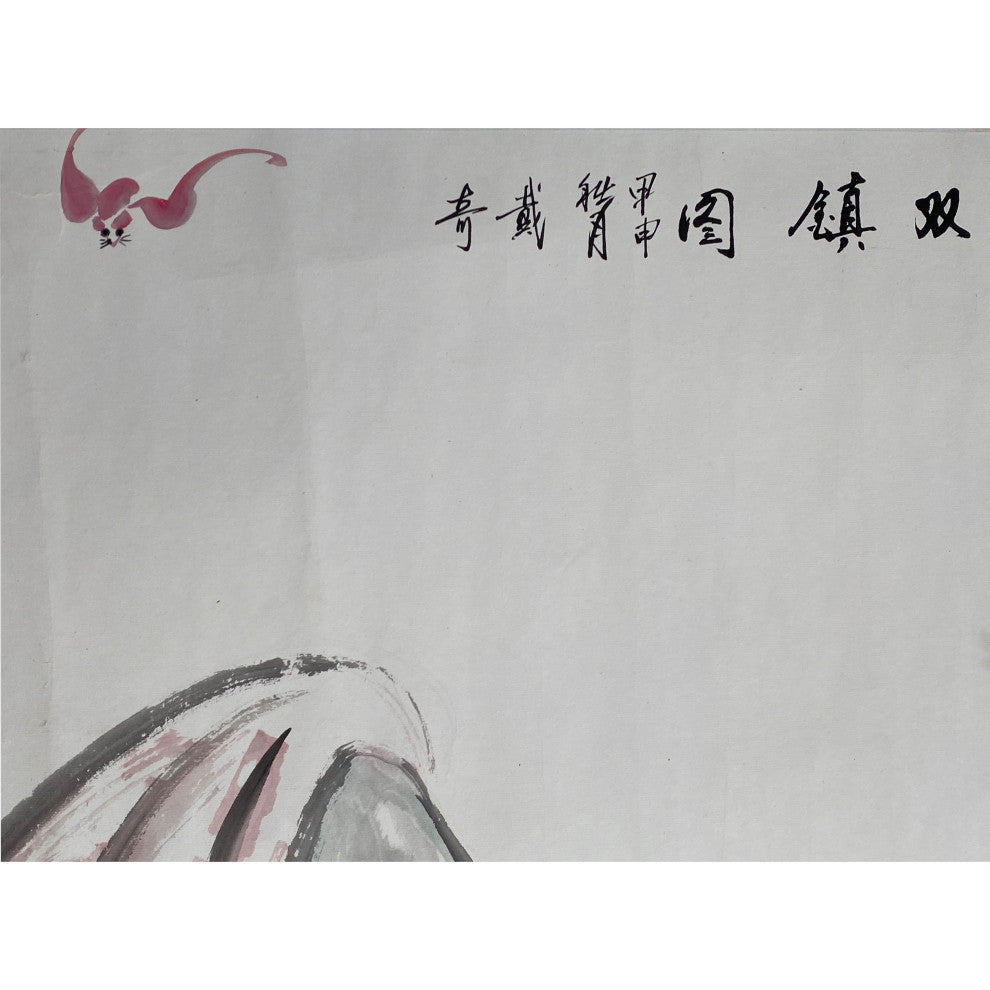 双鎮图 甲申 月 戴奇